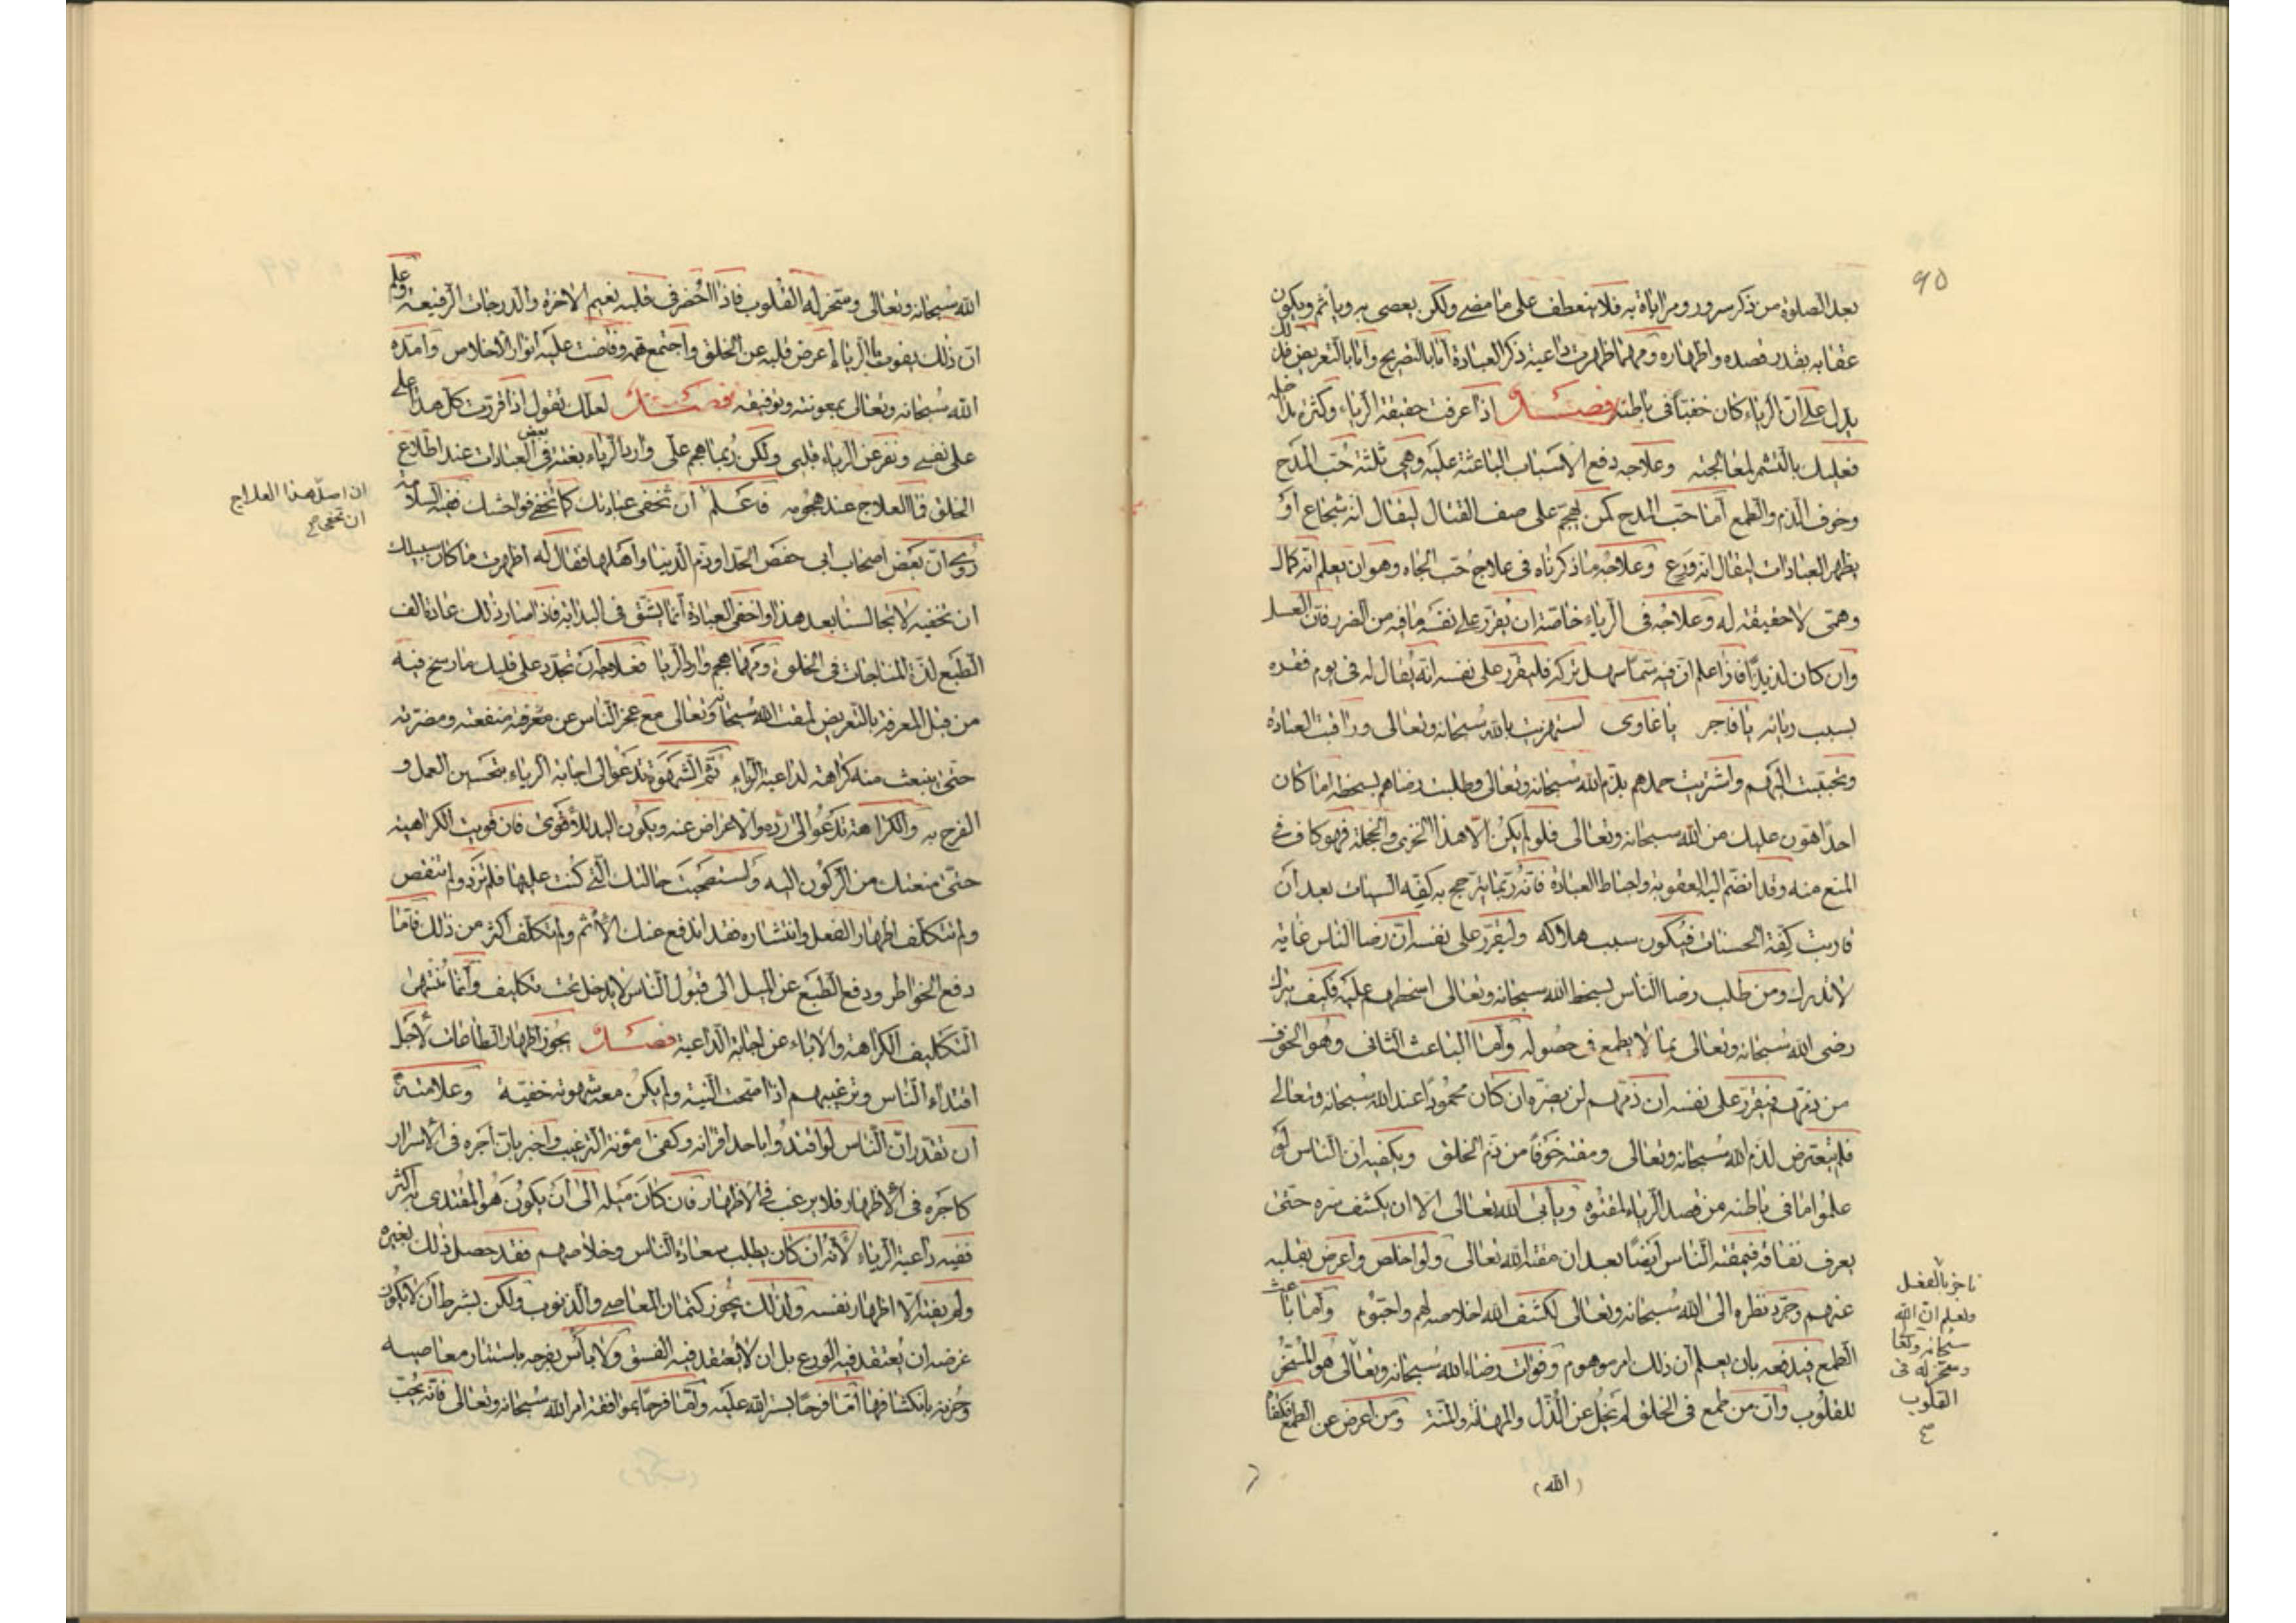 ٩٥
بعد الصلوة من ذكر سرور ومراياة به فلا ينعطف على ما مضى ولكن يعصى به ويأثم ويكون
عقابه بقدر قصده واظهاره ومهما ظهرت داعية ذكر العبادة اما بالتصريح واما بالتعريض فذلك
يدل على ان الرياء كان خفيا في باطنه فصل اذا عرفت حقيقة الرياء وكثرة مداخله
فعليك بالتشمر لمعالجته وعلاجه دفع الاسباب الباعثة عليه وهى ثلثة حب المدح
وخوف الذم والطمع اما حب المدح كمن يهجم على صف القتال ليقال انه شجاع او
يظهر العبادات ليقال انه ورع وعلاجه ما ذكرناه في علاج حب الجاه وهو ان يعلم انه كمال
وهمى لا حقيقة له وعلاجه في الرياء خاصة ان يقرر على نفسه ما فيه من الضرر فان العسل
وان كان لذيذا فاذا علم ان فيه سما سهل تركه فليقرر على نفسه انه يقال له في يوم فقره
بسبب ريائه يا فاجر يا غاوى استهزيت بالله سبحانه وتعالى وراقبت العبادة
وتحببت اليهم واشتريت حمدهم بذم الله سبحانه وتعالى وطلبت رضاهم بسخطه اما كان
احد اهون عليك من الله سبحانه وتعالى فلو لم يكن الا هذا الخزى والخجلة فهو كاف في
المنع منه وقد انضم اليه العقوبة واحباط العبادة فانه ربما يترجح به كفة السيئات بعد ان
قاربت كفة الحسنات فيكون سبب هلاكه وليقرر على نفسه ان رضا الناس غاية
لا تدرك ومن طلب رضا الناس بسخط الله سبحانه وتعالى اسخطهم عليه فكيف يترك
رضى الله سبحانه وتعالى بما لا يطمع في حصوله واما الباعث الثانى وهو الخوف
من ذمهم فيقرر على نفسه ان ذمهم لن يضره ان كان محمودا عند الله سبحانه وتعالى
فلم يتعرض لذم الله سبحانه وتعالى ومقته خوفا من ذم الخلق ويكفيه ان الناس لو
علموا ما في باطنه من قصد الرياء لمقتوه ويأبى الله تعالى الا ان يكشف سره حتى
يعرف نفاقه فيمقته الناس ايضا بعد ان مقته الله تعالى ولو اخلص واعرض بقلبه
عنهم وجرد نظره الى الله سبحانه وتعالى لكشف الله اخلاصه لهم واحبوه واما باعث
الطمع فيدفعه بان يعلم ان ذلك امر موهوم وفوات رضاء الله سبحانه وتعالى هو المسخر
للقلوب وان من طمع في الخلق لم يخل عن الذل والمهانة والمنة ومن اعرض عن الطمع كفاه
ناجز بالفعل
وليعلم ان الله
سبحانه وتعا
وسخر له في
القلوب
صح
(الله)
الله سبحانه وتعالى وسخر له القلوب فاذا احضر في قلبه نعيم الاخرة والدرجات الرفيعة وعلم
ان ذلك يفوت بالرياء اعرض قلبه عن الخلق واجتمع همه وفاضت عليه انوار الاخلاص وامده
الله سبحانه وتعالى بمعونته وتوفيقه فصل لعلك تقول اذا قررت كل هذا على
على نفسى ونفر عن الرياء قلبى ولكن ربما هجم على وارد الرياء بغتة في بعض العبادات عند اطلاع
الخلق فما العلاج عند هجومه فاعلم ان تخفى عبادتك كما تخفى فواحشك ففيه السلامة
روى ان بعض اصحاب ابى حفص الحداد ذم الدنيا واهلها فقال له اظهرت ما كان سبيلك
ان تخفيه لا تجالسنا بعد هذا واخفى العبادة انما يشق في البداية فاذا صار ذلك عادة الف
الطبع لذة المناجات في الخلوة ومهما هجم وارد الريا فعلاجه ان تجدد على قلبك ما رسخ فيه
من قبل المعرفة بالتعريض لمقت الله سبحانه وتعالى مع عجز الناس عن معرفة منفعته ومضرته
حتى ينبعث منه كراهة لداعية الرياء ثم الشهوة تدعو الى اجابة الرياء بتحسين العمل و
الفرح به والكراهة تدعو الى رده والاعراض عنه ويكون اليد للاقوى فان قويت الكراهية
حتى منعتك من الركون اليه واستصحبت حالتك التى كنت عليها فلم تزد ولم تنقص
ولم تتكلف اظهار الفعل وانتشاره فقد اندفع عنك الاثم ولم تكلف اكثر من ذلك فاما
دفع الخواطر ودفع الطبع عن الميل الى قبول الناس لا يدخل تحت تكليف وانما منتهى
التكليف الكراهة والاباء عن اجابة الداعية فصل يجوز اظهار الطاعات لاجل
اقتداء الناس وترغيبهم اذا صحت النية ولم يكن معه شهوة خفية وعلامته
ان تقدر ان الناس لو اقتدوا باحد اقرانه وكفى مؤنة الترغيب واخبر بان اجره في الاسرار
كاجره في الاظهار فلا يرغب في الاظهار فان كان ميله الى ان يكون هو المقتدى به اكثر
ففيه داعية الرياء لانه ان كان يطلب سعادة الناس وخلاصهم فقد حصل ذلك بغيره
ولم يفته الا اظهار نفسه ولذلك يجوز كتمان المعاصى والذنوب ولكن بشرط ان لا يكون
غرضه ان يعتقد فيه الورع بل ان لا يعتقد فيه الفسق ولا بأس بفرحه باستتار معاصيه
وحزنه بانكشافها اما فرحا بستر الله عليه واما فرحا بموافقة امر الله سبحانه وتعالى فانه يحب
ان اصل هذا العلاج
ان تخفى صح